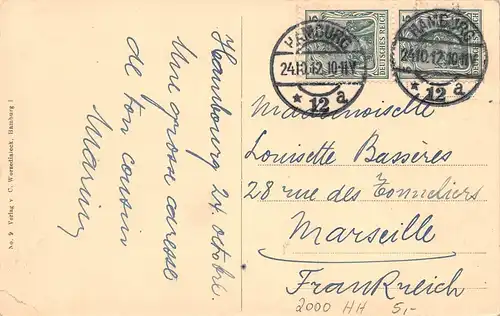 Hambourg 24 octobre.
Une grosse caresse
de ton cousin
No. 9 Verlag v. C. Worzedialeck, Hamburg 1
DEUTSCHES REICH
DEUTSCHES REICH
HAMBURG
24.10.12.10-11V
* 12 a.
HAMBURG
24.10.12.10-11V
* 12 a.
Mademoiselle
Louisette Bassères
28 rue des Tonneliers
Marseille
Frankreich
2000 HH 5,-